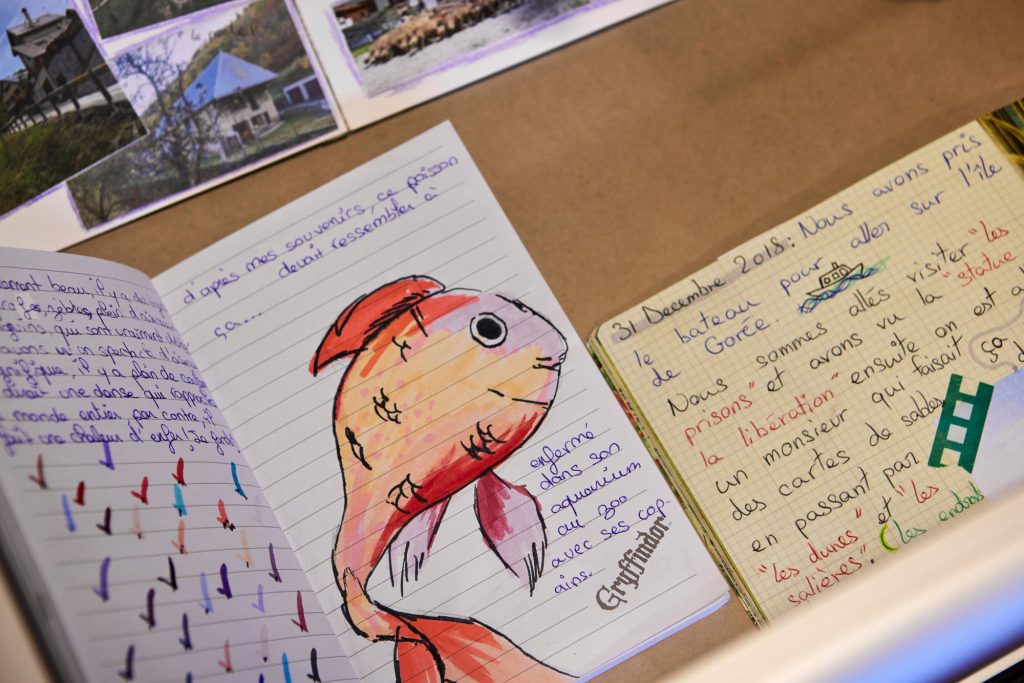 beau, il y a
zèbres, plein
qui sont vraiment
un spectacle
il y a plein de
une danse qui
monde entier par contre, il
fait une chaleur d'enfer,
d'après mes souvenirs, ce poisson
devait ressembler à
ça...
enfermé
dans son
aquarium
au zoo
avec ses cop-
ains.
Gryffindor
31 Decembre 2018: Nous avons pris
le bateau pour aller sur l'île
de Gorée
Nous sommes allés visiter "les
prisons" et avons vu la "statue
la libération" ensuite on est
un monsieur qui faisait
des cartes de sables
en passant par
"les dunes" et "les
salières".
ça